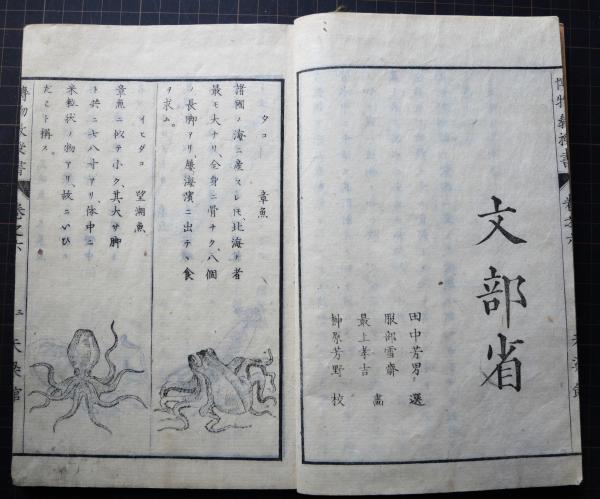 文部省
田中芳男 選
服部雪齋 畵
最上孝吉
榊原芳野 校
タコ 章魚
諸國ノ海ニ産スレ𪜈、北海ノ者
最モ大ナリ、全身ニ骨ナク、八個
ノ長脚アリ、屡海濱ニ出テ、食
ヲ求ム。
イヒダコ 望潮魚
章魚ニ似テ小ク、其大サ脚
ト共ニ七八寸アリ、体中ニ
米粒状ノ物アリ、故ニいひ
だこト稱ス。
卷之六
二